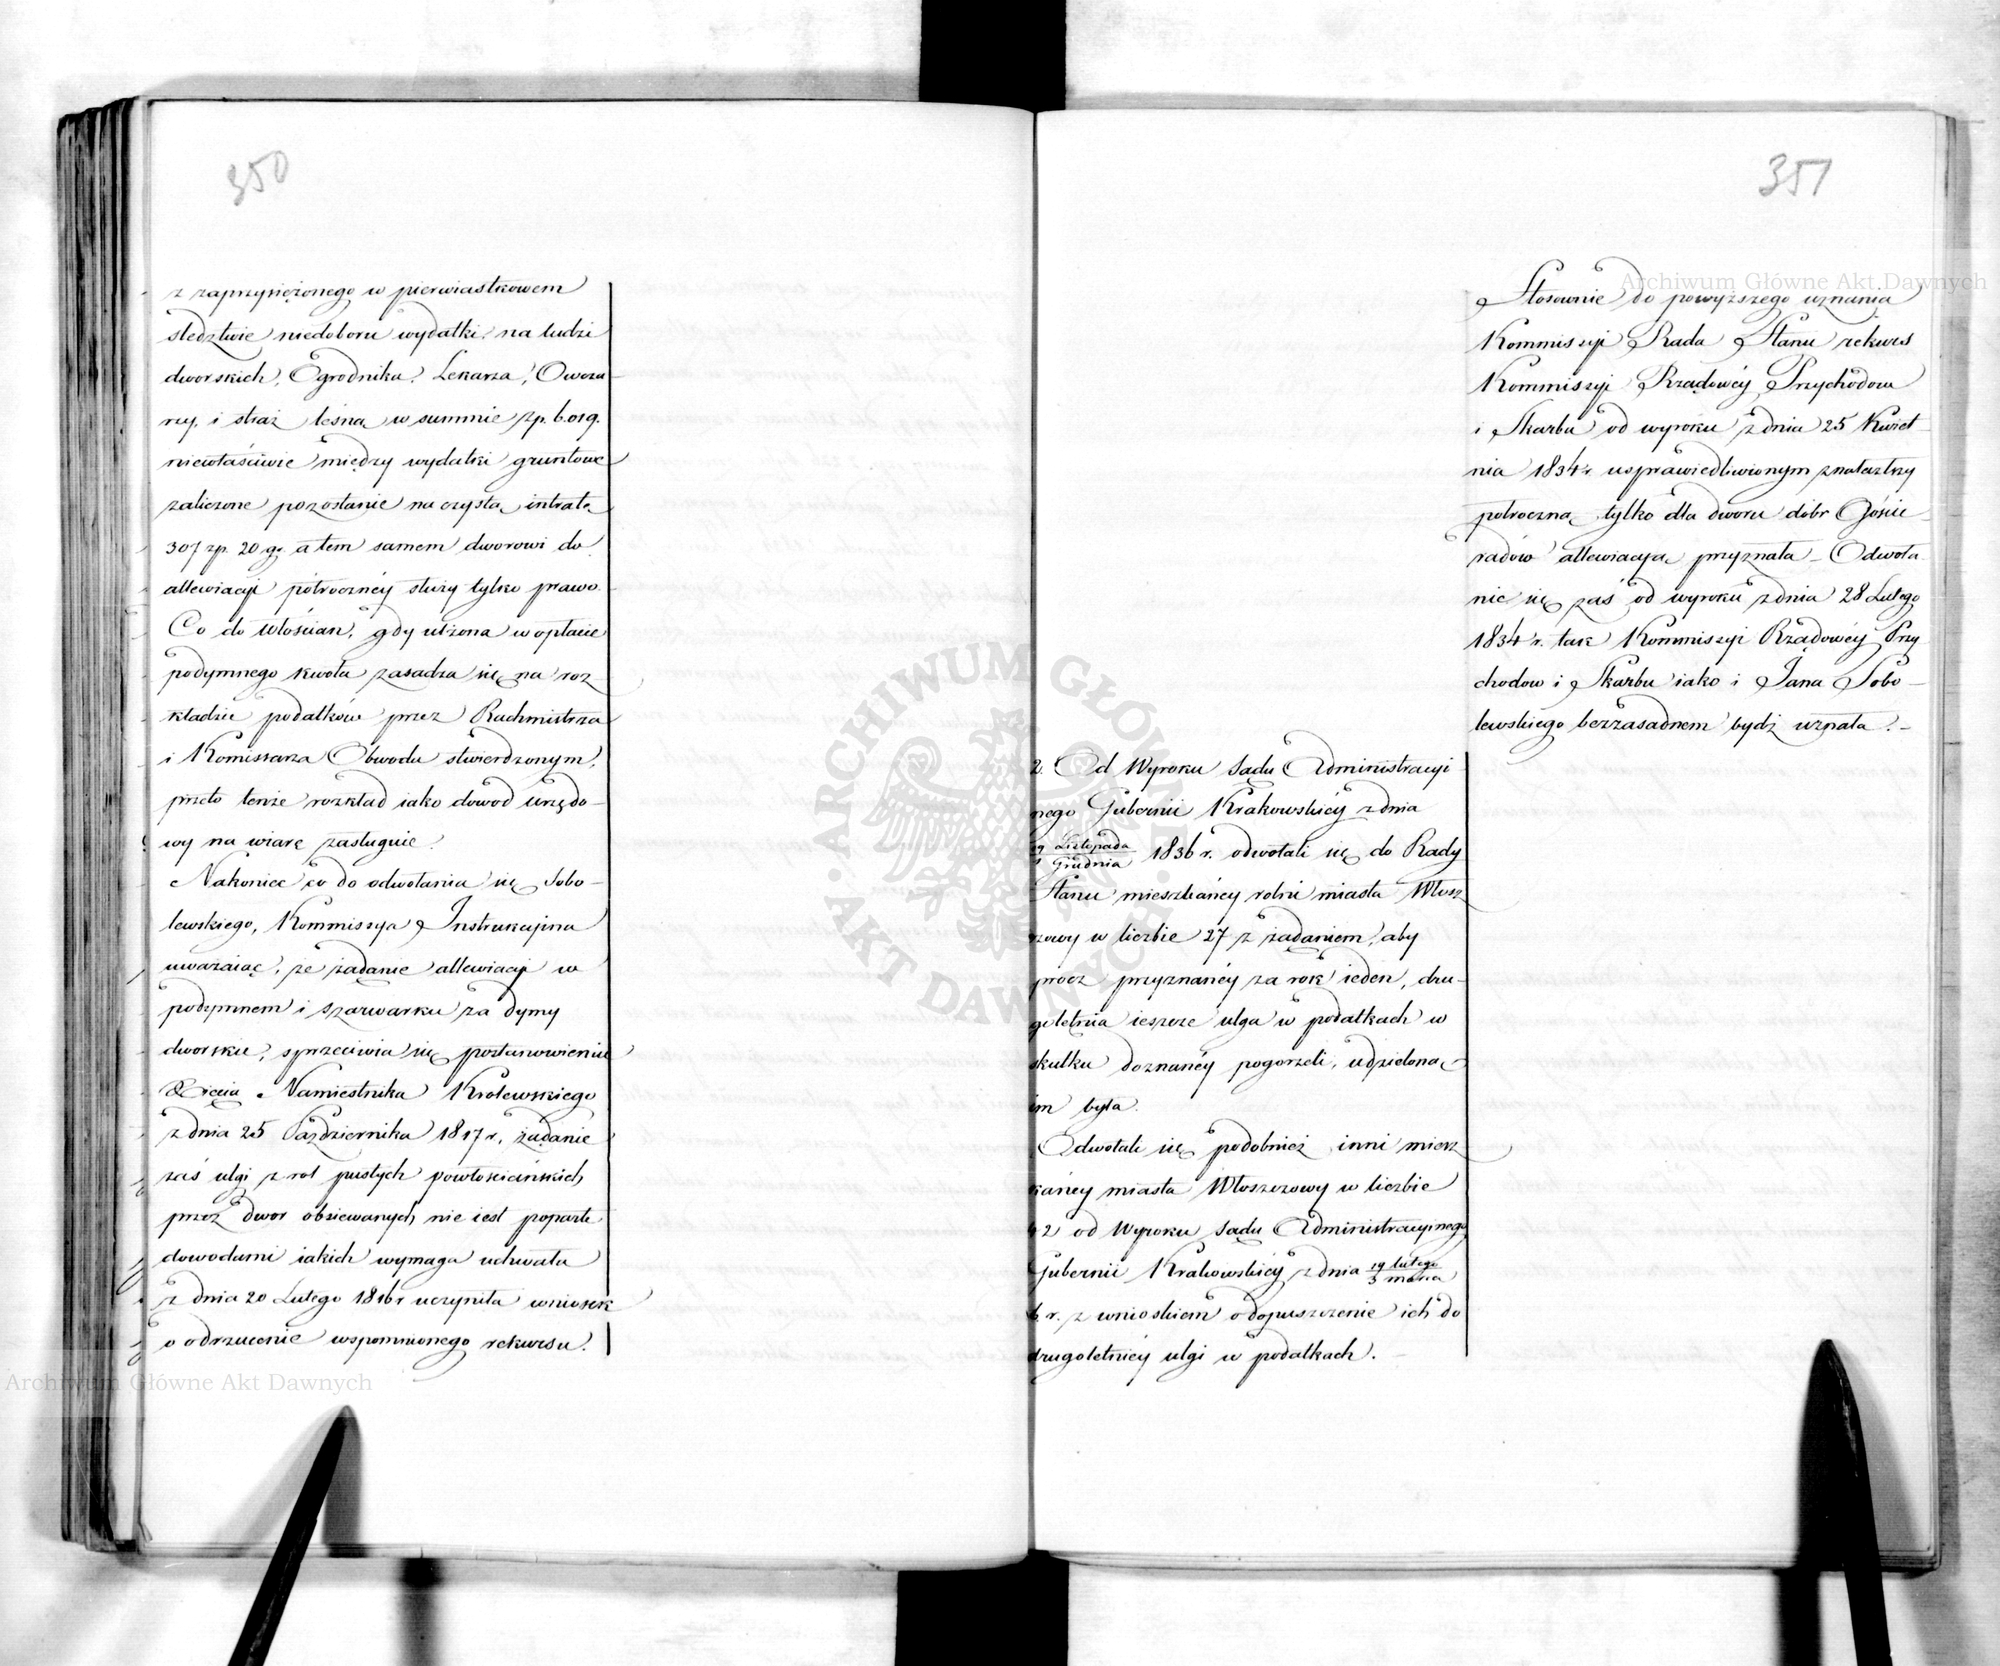 350
z zaprzysiężonego w pierwiastkowem
śledztwie niedoboru wydatki na ludzi
dworskich, Ogrodnika, Lekarza, Owcza-
rzy, i straż leśną w summie zp. 6.019.
niewłaściwie między wydatki gruntowe
zaliczone pozostanie na czystą intratę
307 zp. 20 gr. a tem samem dworowi do
allewiacyi półrocznéy służy tylko prawo.
Co do Włościan, gdy ulżona w opłacie
podymnego kwota zasadza się na roz-
kładzie podatków przez Rachmistrza
i Komissarza Obwodu stwierdzonym,
przeto tenże rozkład iako dowod urzędo-
wy na wiarę zasługuie.
Nakoniec co do odwołania się Sobo-
lewskiego, Kommissya Instrukcyina
uważaiąc, że żądanie allewiacyi w
podymnem i szarwarku za dymy
dworskie, sprzeciwia się postanowieniu
Xięcia Namiestnika Krolewskiego
z dnia 25 Października 1817 r, żądanie
zaś ulgi z rol pustych powłościańskich
przez dwor obsiewanych nie iest poparte
dowodami iakich wymaga uchwała
z dnia 20 Lutego 1816 r uczyniła wniosek
o odrzucenie wspomnionego rekursu.
351
Stosownie do powyższego uznania
Kommissyi Rada Stanu rekurs
Kommissyi Rządowéy Przychodow
i Skarbu od wyroku z dnia 25 Kwiet-
nia 1834 r. usprawiedliwionym znalazłszy
połroczną tylko dla dworu dobr Goście-
radów allewiacyą przyznała – Odwoła-
nie się zaś od wyroku z dnia 28 Lutego
1834 r. tak Kommissyi Rządowéy Przy
chodow i Skarbu iako i Jana Sobo-
lewskiego bezzasadnem bydź uznała. –
2. Od Wyroku Sądu Administracyi
nego Gubernii Krakowskiéy z dnia
19 Listopada / 1 Grudnia 1836 r. odwołali się do Rady
Stanu mieszkańcy rolni miasta Włosz
zowy w liczbie 27 z żądaniem, aby
procz przyznanéy za rok ieden, dru-
goletnia ieszcze ulga w podatkach w
skutku doznanéy pogorzeli, udzieloną
im była.
Odwołali się podobnież inni miesz
kańcy miasta Włoszczowy w liczbie
42 od Wyroku Sądu Administracyinego
Gubernii Krakowskiéy z dnia 19 Lutego / 3 Marca
6 r. z wnioskiem o dopuszczenie ich do
drugoletniéy ulgi w podatkach. –
Archiwum Główne Akt Dawnych
Archiwum Główne Akt Dawnych
ARCHIWUM GŁÓWNE AKT DAWNYCH